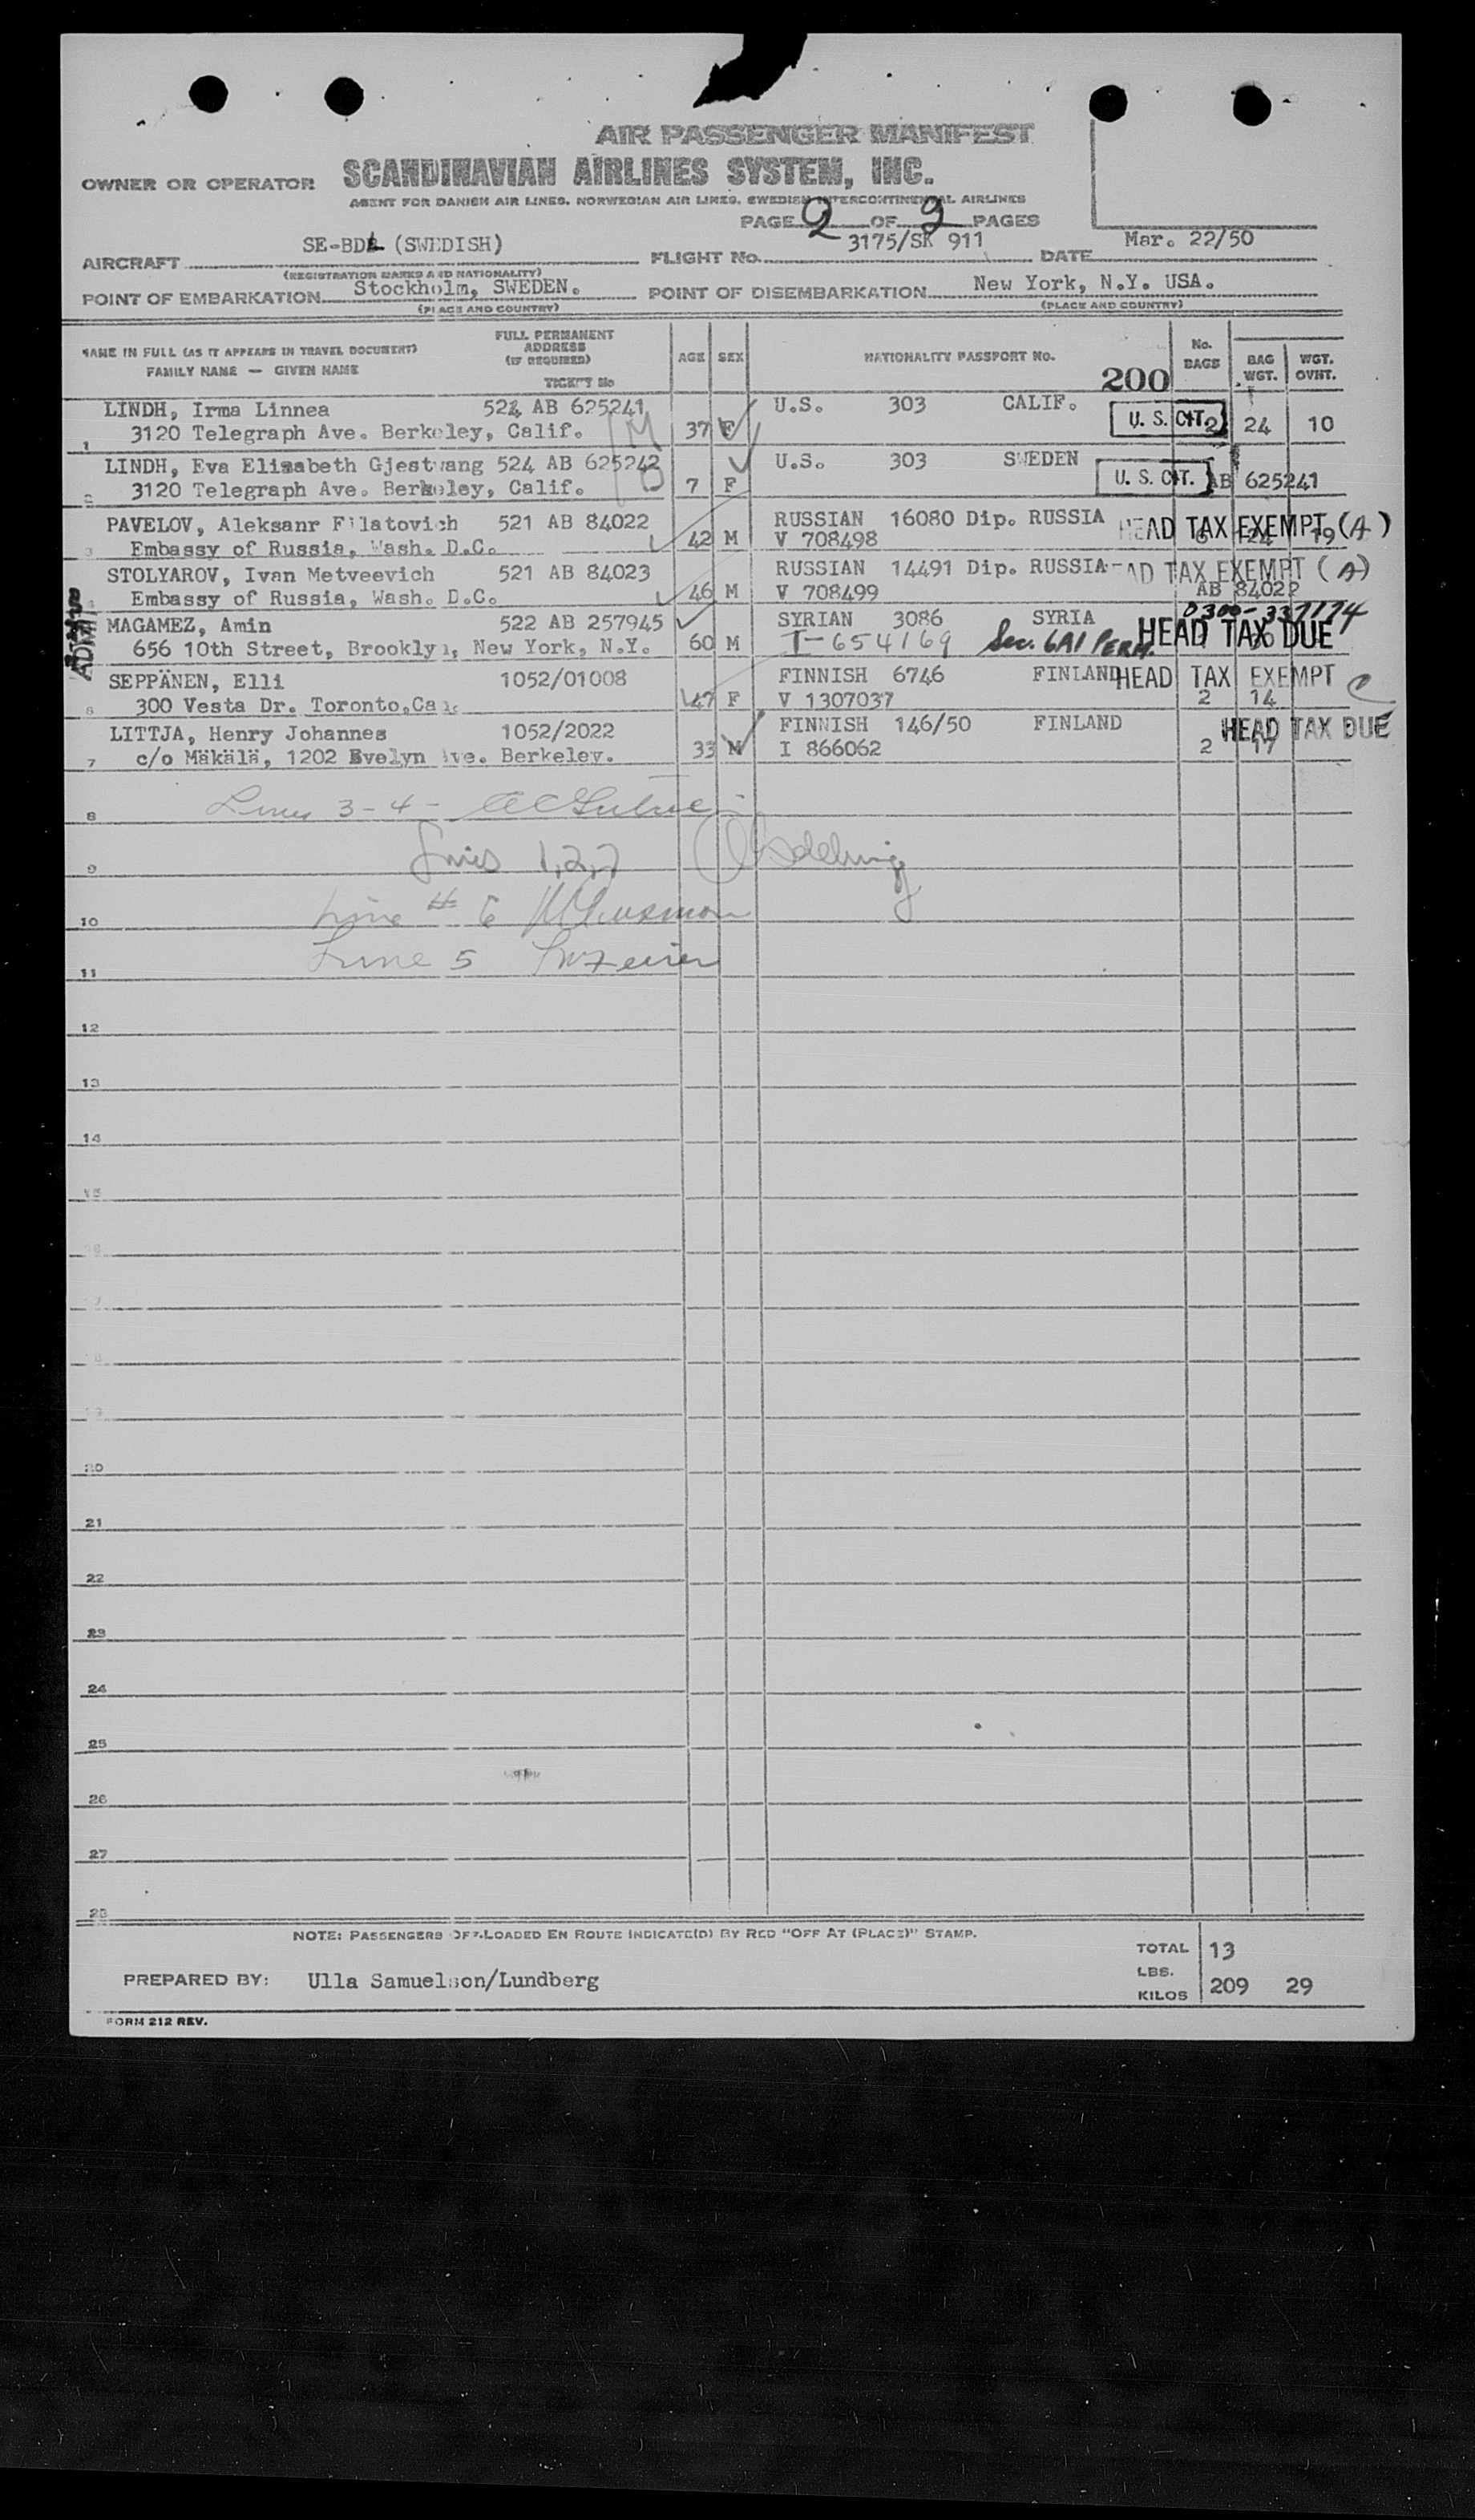 AIR PASSENGER MANIFEST
OWNER OR OPERATOR SCANDINAVIAN AIRLINES SYSTEM, INC.
AGENT FOR DANISH AIR LINES, NORWEGIAN AIR LINES, SWEDISH INTERCONTINENTAL AIRLINES
PAGE 2 OF 2 PAGES
AIRCRAFT SE-BDL (SWEDISH) FLIGHT No. 3175/SK 911 DATE Mar. 22/50
(REGISTRATION MARKS AND NATIONALITY)
POINT OF EMBARKATION Stockholm, SWEDEN. POINT OF DISEMBARKATION New York, N.Y. USA.
(PLACE AND COUNTRY) (PLACE AND COUNTRY)
NAME IN FULL (AS IT APPEARS IN TRAVEL DOCUMENT) FULL PERMANENT ADDRESS (IF REQUIRED) AGE SEX NATIONALITY PASSPORT No. No. BAGS BAG WGT. WGT. OVHT.
FAMILY NAME — GIVEN NAME TICKET No 200
LINDH, Irma Linnea 524 AB 625241 U.S. 303 CALIF. U. S. CIT.
1 3120 Telegraph Ave. Berkeley, Calif. M 37 F 2 24 10
LINDH, Eva Elisabeth Gjestvang 524 AB 625242 U.S. 303 SWEDEN
2 3120 Telegraph Ave. Berkeley, Calif. 7 F U. S. CIT. AB 625241
PAVELOV, Aleksanr Filatovich 521 AB 84022 RUSSIAN 16080 Dip. RUSSIA HEAD TAX EXEMPT (A)
3 Embassy of Russia, Wash. D.C. 42 M V 708498 6 124 19
STOLYAROV, Ivan Metveevich 521 AB 84023 RUSSIAN 14491 Dip. RUSSIA -AD TAX EXEMPT (A)
4 Embassy of Russia, Wash. D.C. 46 M V 708499 AB 84022
MAGAMEZ, Amin 522 AB 257945 SYRIAN 3086 SYRIA 0300-337174
656 10th Street, Brooklyn, New York, N.Y. 60 M I-654169 Sec. 6A1 PERM. HEAD TAX DUE
SEPPÄNEN, Elli 1052/01008 FINNISH 6746 FINLAND HEAD TAX EXEMPT C
6 300 Vesta Dr. Toronto, Can. 47 F V 1307037 2 14
LITTJA, Henry Johannes 1052/2022 FINNISH 146/50 FINLAND HEAD TAX DUE
7 c/o Mäkälä, 1202 Evelyn Ave. Berkeley. 33 M I 866062 2 17
8 Lines 3-4-
9 Lines 1,2,7
10 Line # 6
11 Line 5
12
13
14
15
16
17
18
19
20
21
22
23
24
25
26
27
28
NOTE: PASSENGERS OFF-LOADED EN ROUTE INDICATE(D) BY RED "OFF AT (PLACE)" STAMP.
TOTAL 13
PREPARED BY: Ulla Samuelson/Lundberg
LBS.
KILOS 209 29
FORM 212 REV.